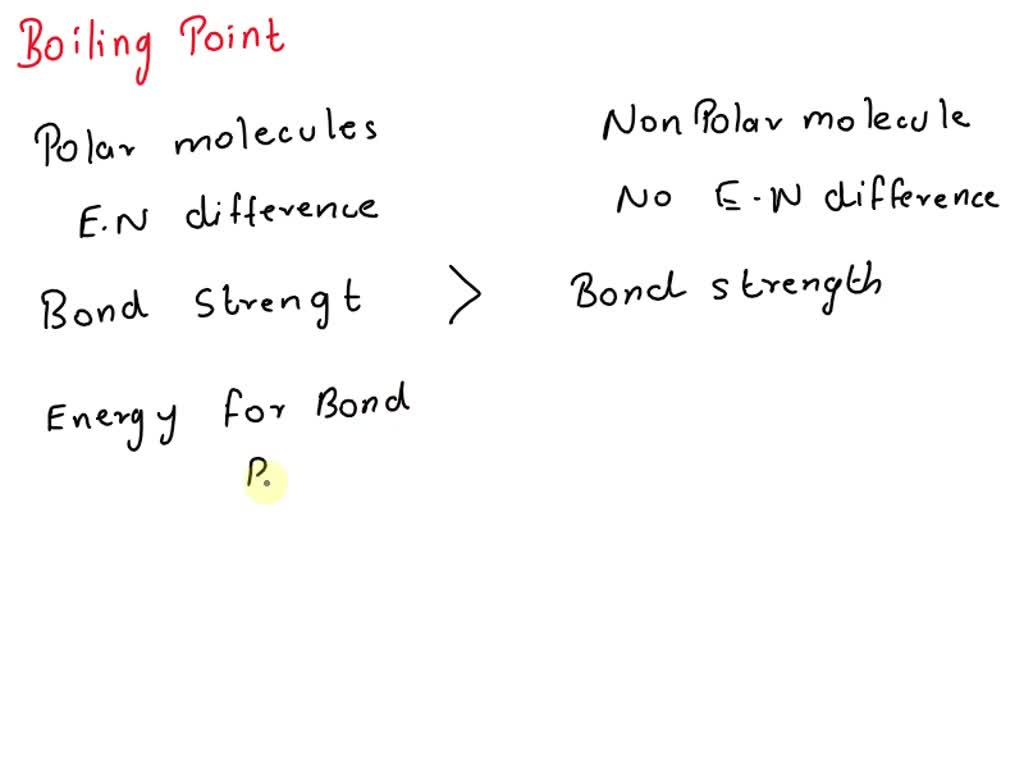 Boiling Point
Polar molecules
Non Polar molecule
E.N difference
No E.N difference
Bond Strengt > Bond strength
Energy for Bond
P.